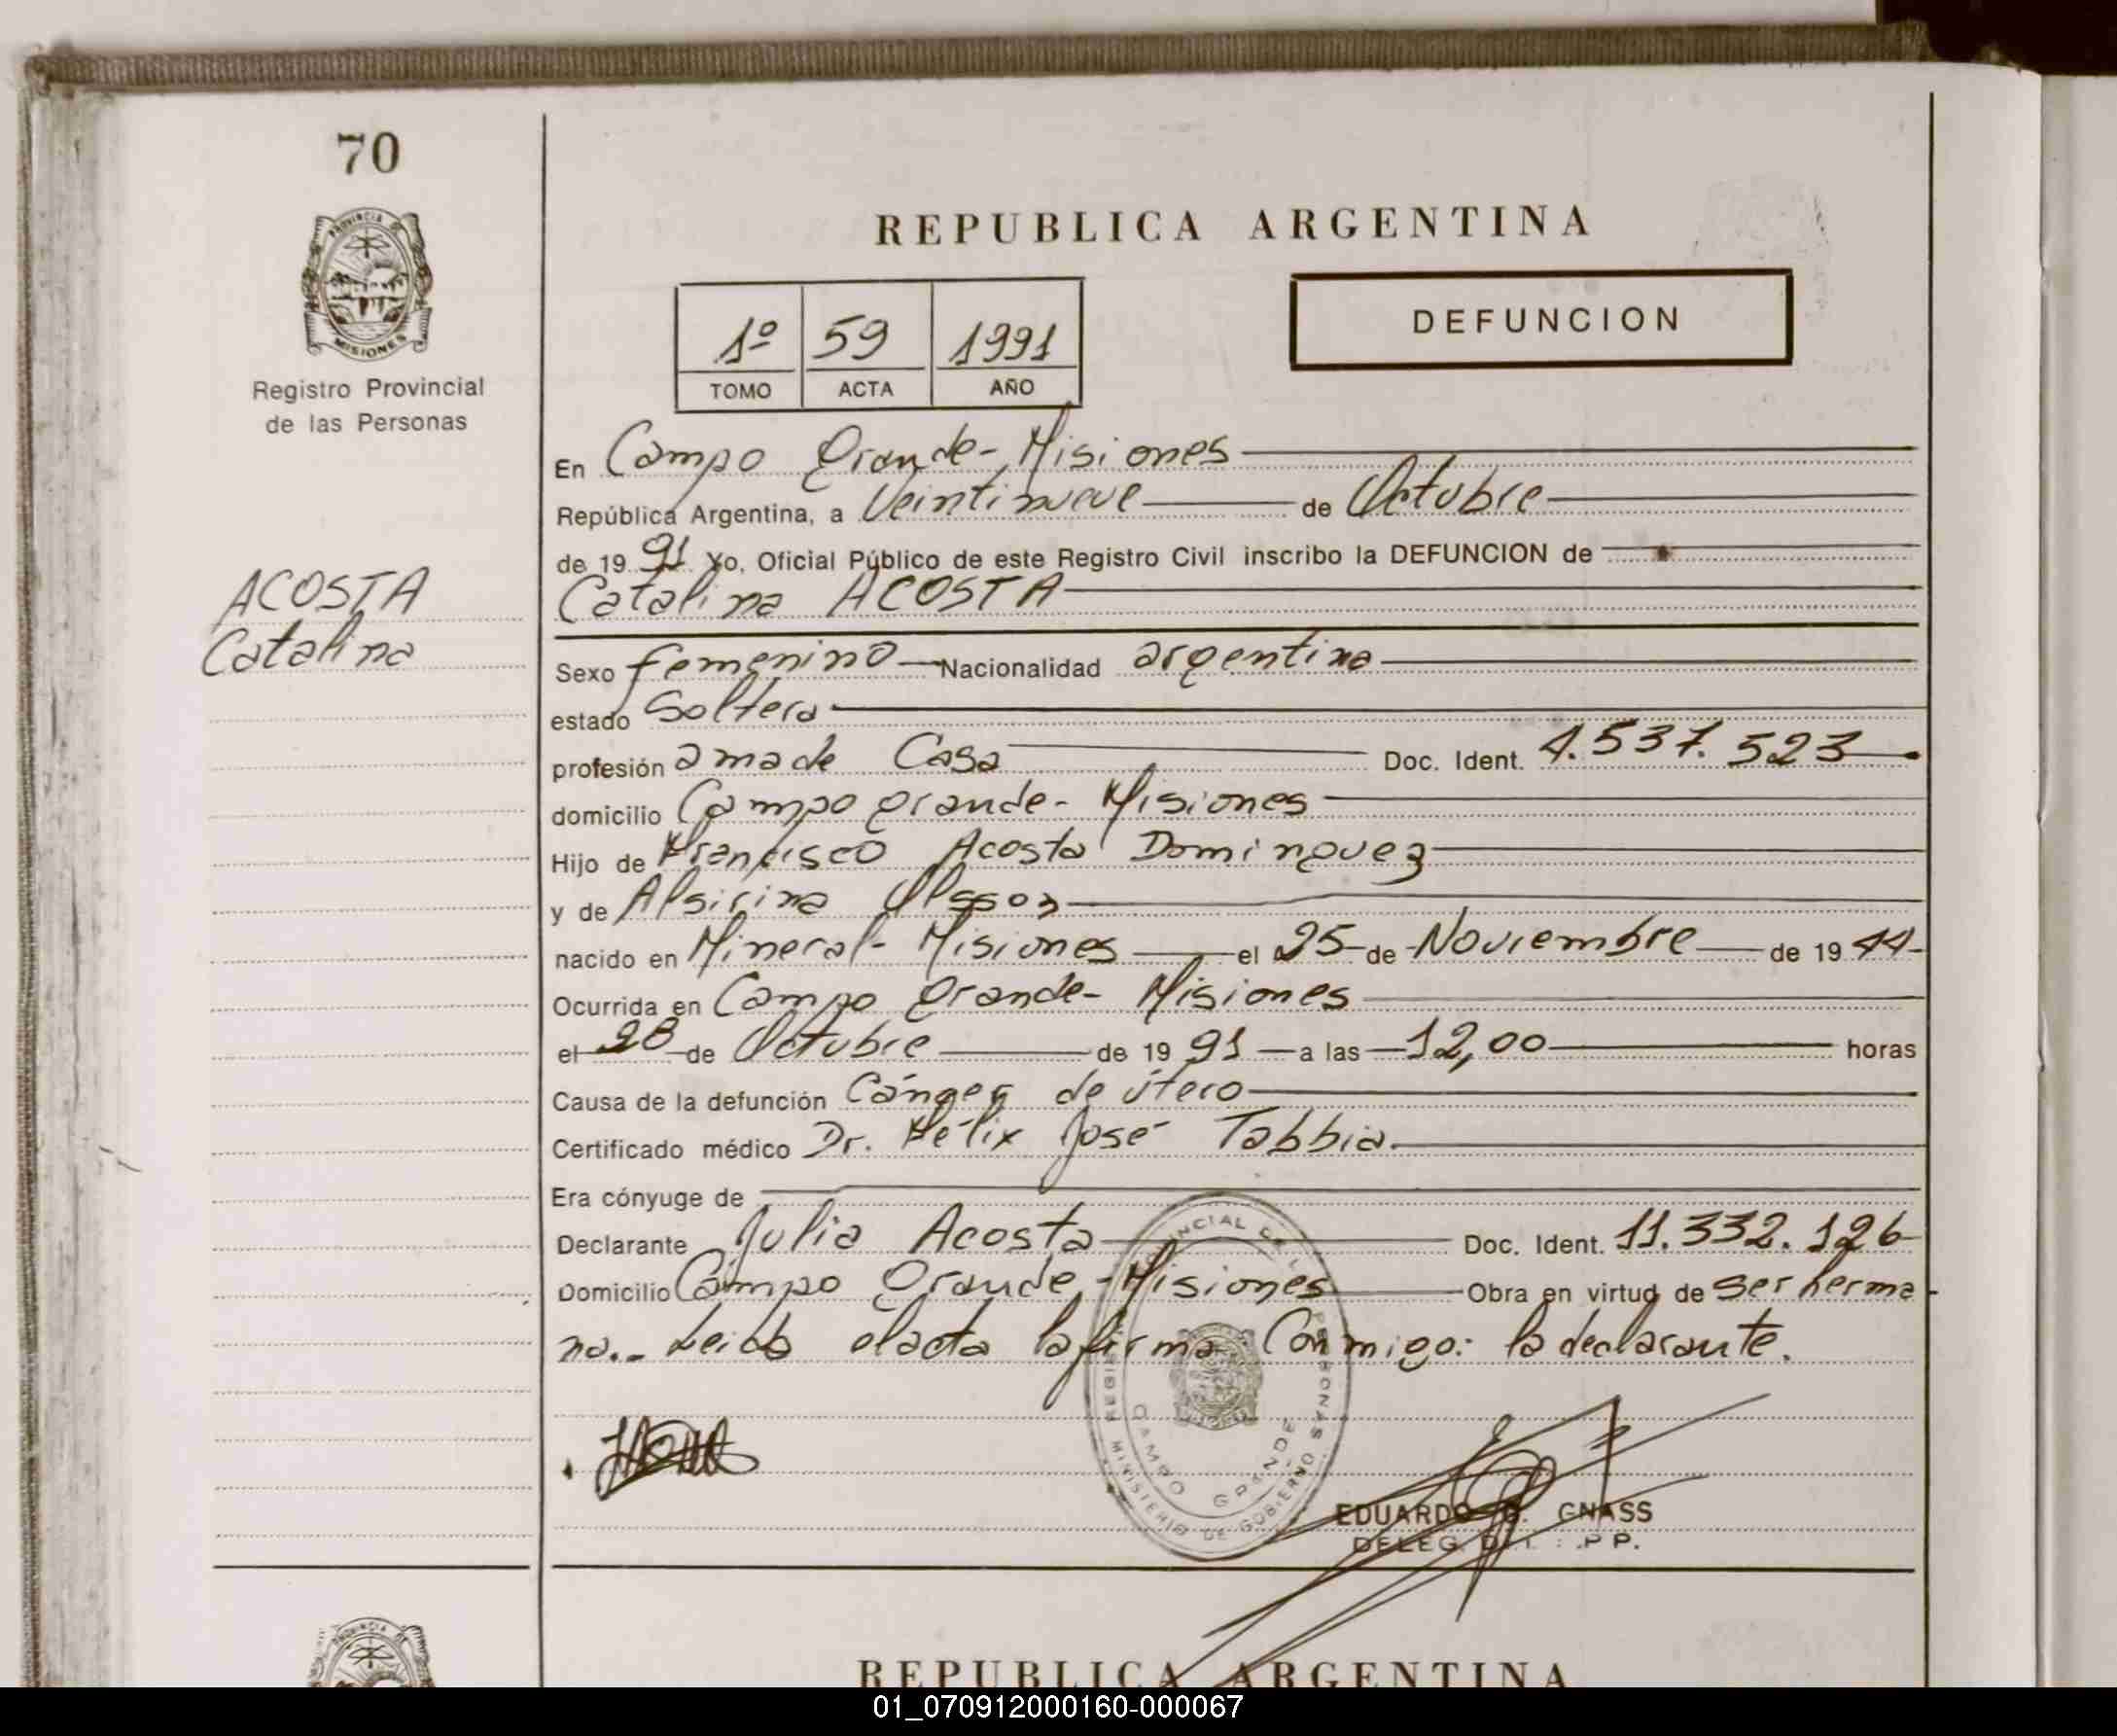 70
PROVINCIA DE
MISIONES
Registro Provincial
de las Personas
REPUBLICA ARGENTINA
1º 59 1991
TOMO ACTA AÑO
DEFUNCION
En Campo Grande - Misiones
República Argentina, a Veintinueve de Octubre
de 19 91 Yo, Oficial Público de este Registro Civil inscribo la DEFUNCION de
Catalina ACOSTA
ACOSTA
Catalina
Sexo femenino Nacionalidad argentina
estado Soltera
profesión ama de Casa Doc. Ident. 4.537.523
domicilio Campo grande - Misiones
Hijo de Francisco Acosta Dominguez
y de Alsirina Olsson
nacido en Mineral - Misiones el 25 de Noviembre de 19 44
Ocurrida en Campo Grande - Misiones
el 28 de Octubre de 19 91 a las 12,00 horas
Causa de la defunción Cánger de útero
Certificado médico Dr. Félix José Tabbia.
Era cónyuge de
Declarante Julia Acosta Doc. Ident. 11.332.126
Domicilio Campo Grande - Misiones Obra en virtud de ser herma
na.- Leida el acta la firma Conmigo: la declarante.
MINISTERIO DE GOBIERNO
CAMPO GRANDE
EDUARDO GNASS
DELEG.
REPUBLICA ARGENTINA
01_070912000160-000067